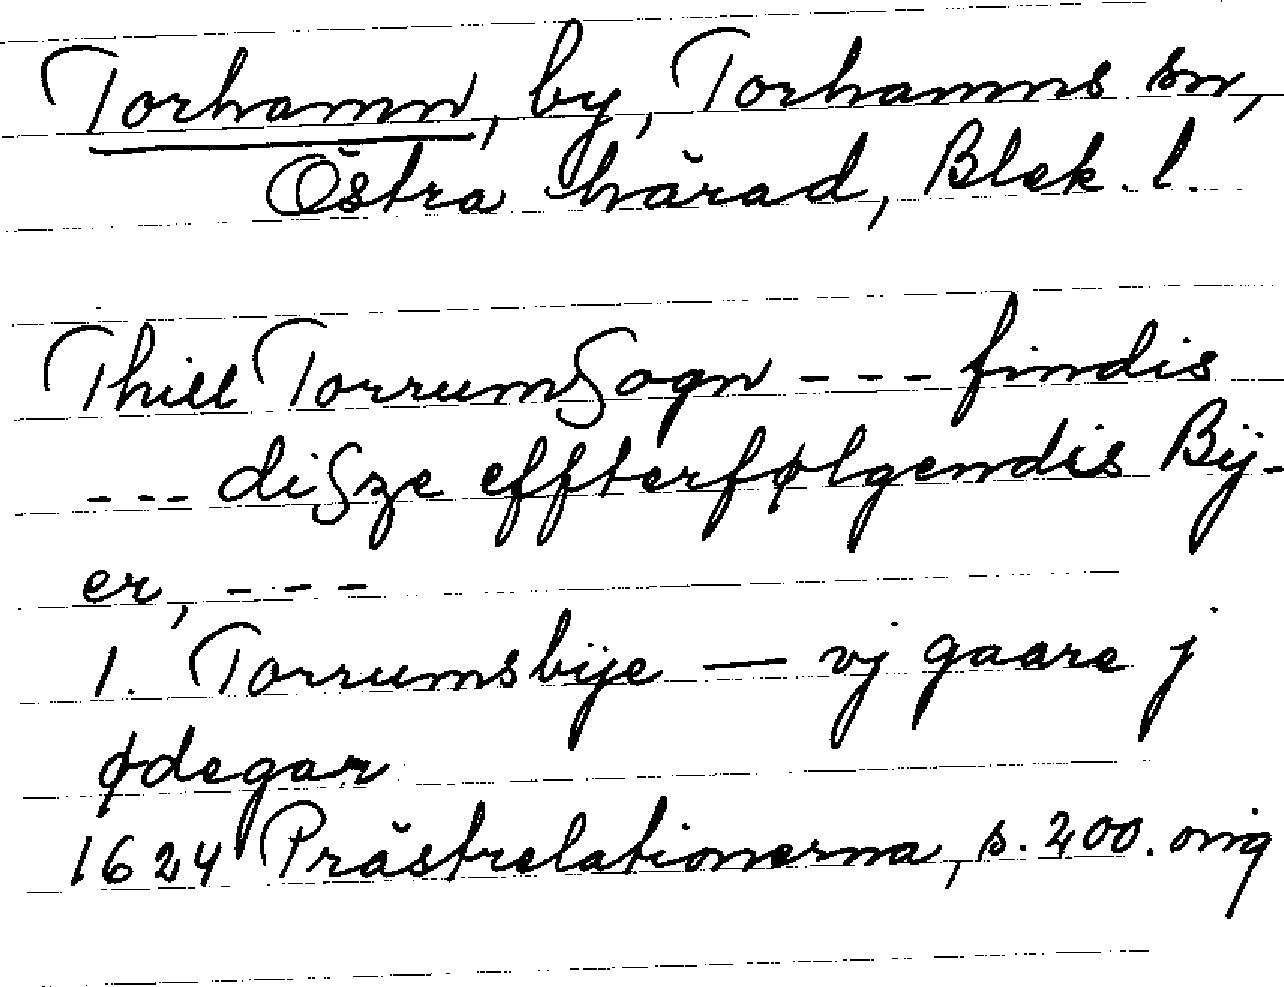 Torhamn, by, Torhamns sn,
Östra härad, Blek. l.
Thill TorrumSogn --- findis
--- diSze effterfølgendis Bij-
er, ---
1. Torrumsbije — vj gaare j
ødegar
1624 Prästrelationerna, s. 200. orig